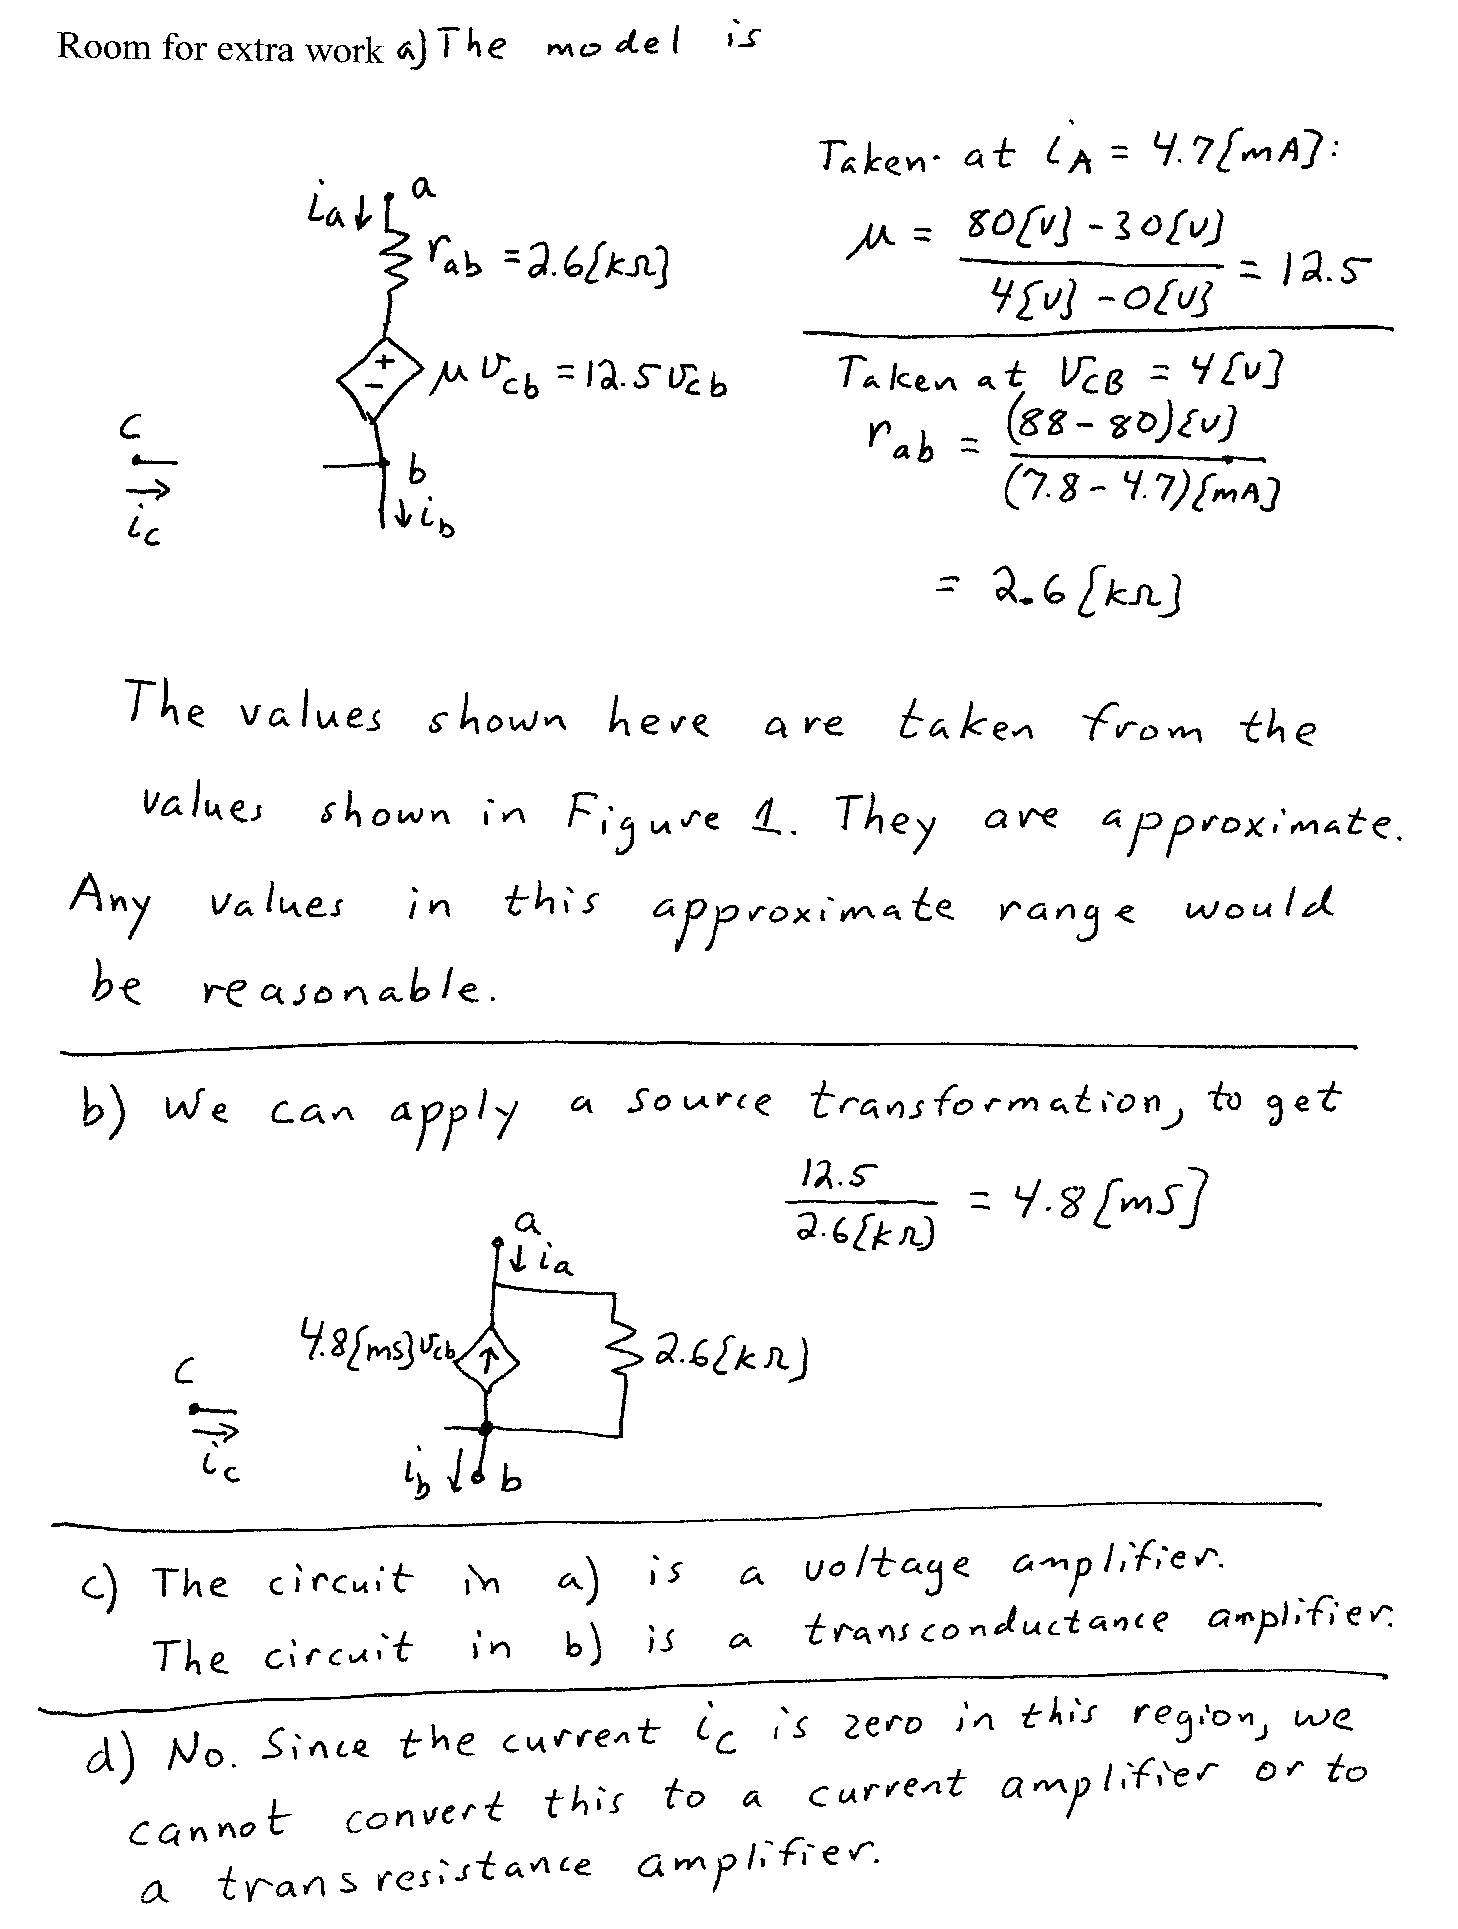 Room for extra work a) The model is
Taken at iA = 4.7[mA]:
ia↓ a
rab = 2.6[kΩ]
μ = 80[v] - 30[v] / 4[v] - 0[v] = 12.5
+
-
μvcb = 12.5vcb
Taken at vCB = 4[v]
rab = (88 - 80)[v] / (7.8 - 4.7)[mA]
c
b
→
ic
↓ib
= 2.6[kΩ]
The values shown here are taken from the
values shown in Figure 1. They are approximate.
Any values in this approximate range would
be reasonable.
b) We can apply a source transformation, to get
12.5 / 2.6[kΩ] = 4.8[mS]
a
↓ia
4.8[mS]vcb ↑ 2.6[kΩ]
c
→
ic
ib ↓ b
c) The circuit in a) is a voltage amplifier.
The circuit in b) is a transconductance amplifier.
d) No. Since the current ic is zero in this region, we
cannot convert this to a current amplifier or to
a transresistance amplifier.